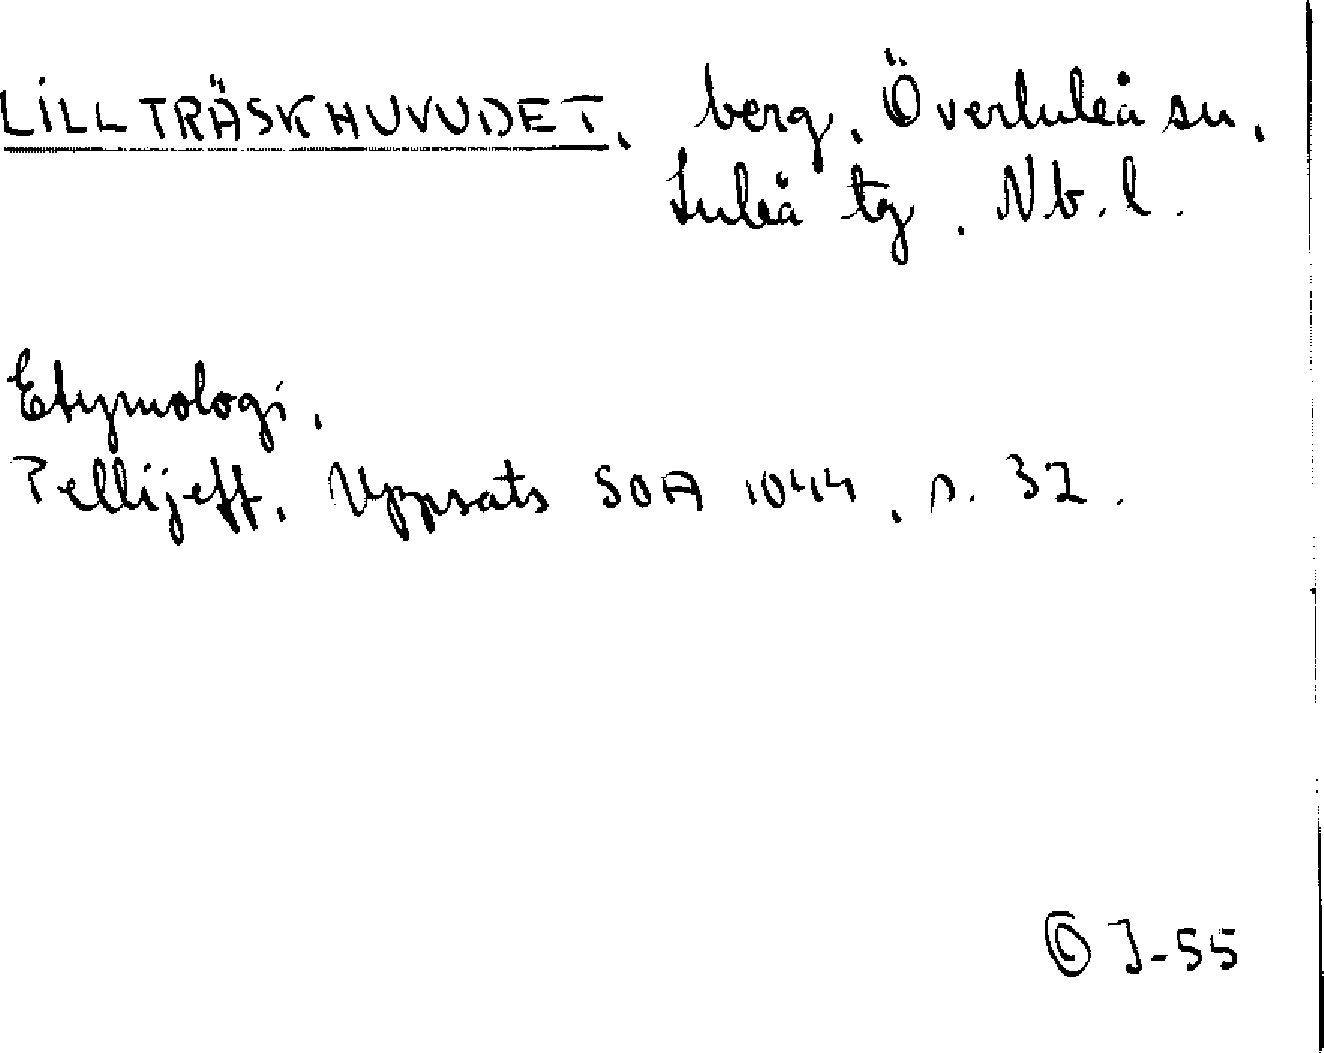 LILLTRÄSKHUVUDET, berg, Överluleå sn,
Luleå tg, Nb. l.
Etymologi,
Pellijeff, Uppsats SOA 1044, s. 32.
J-55